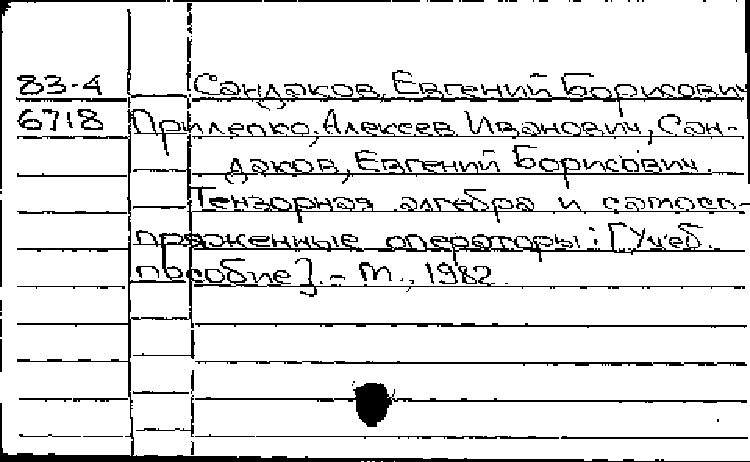 83-4 Сандаков, Евгений Борисович
6718 Прилепко, Алексей Иванович, Сан-
даков, Евгений Борисович.
Тензорная алгебра и самосо-
пряженные операторы: [Учеб.
пособие]. - М., 1982.